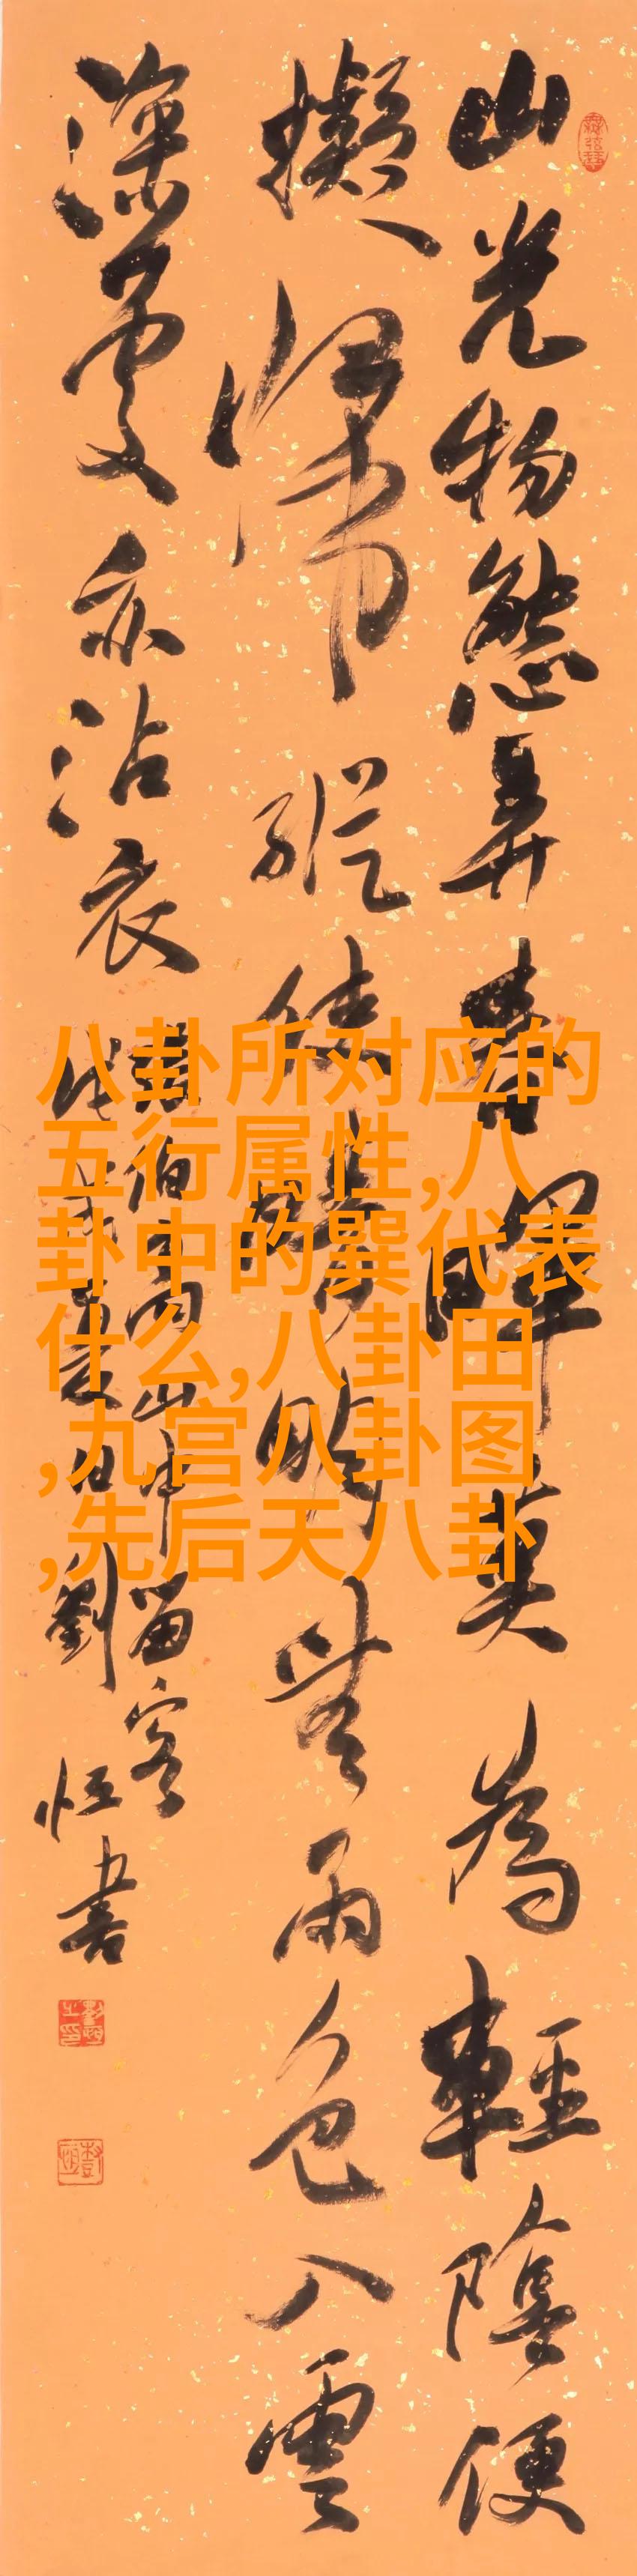 山光物態弄春暉莫為輕陰便
擬歸縱使晴明無雨色入雲
深處亦沾衣
山中留客
夏日劉恒書
八卦所对应的
五行属性,八
卦中的巽代表
什么,八卦田
,九宫八卦图
,先后天八卦